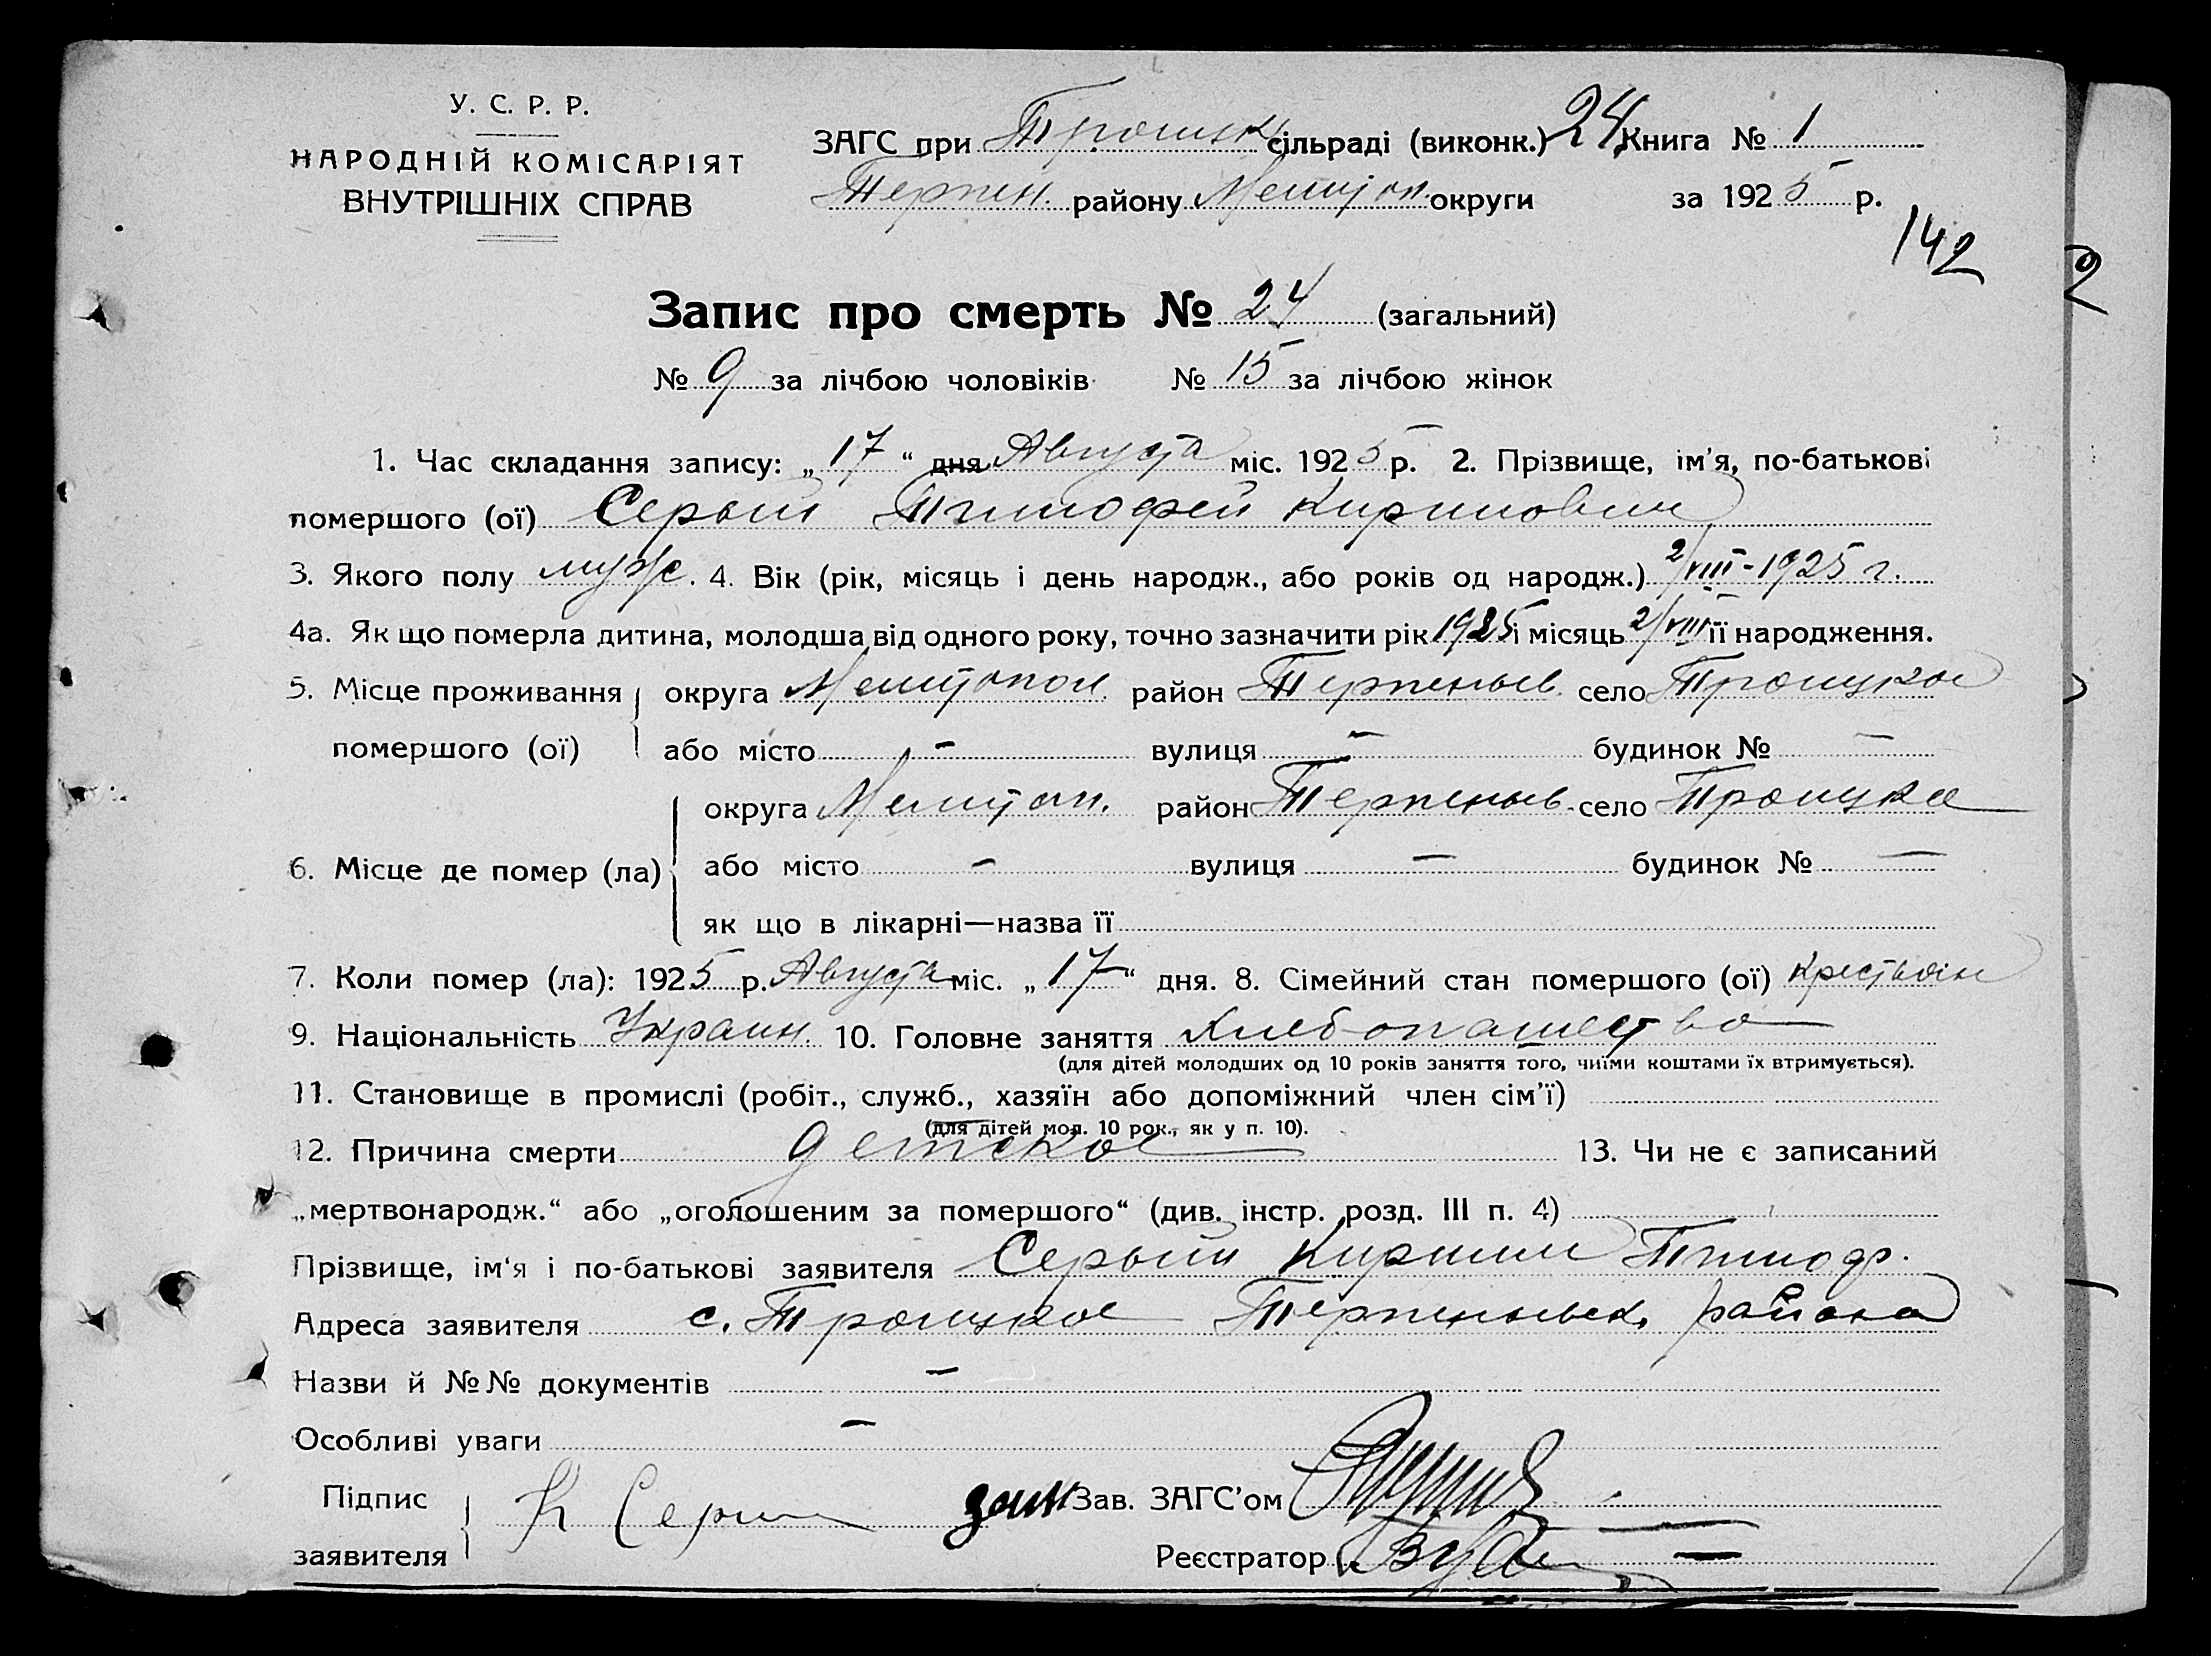 У. С. Р. Р.
НАРОДНІЙ КОМІСАРІЯТ
ВНУТРІШНІХ СПРАВ
ЗАГС при Троицк сільраді (виконк.) 24 Книга № 1
Терпен. району Мелитоп. округи за 1925 р.
142
2
Запис про смерть № 24 (загальний)
№ 9 за лічбою чоловіків № 15 за лічбою жінок
1. Час складання запису: „17“ дня Августа міс. 1925 р. 2. Прізвище, ім'я, по-батькові
помершого (ої) Серый Тимофей Кириллович
3. Якого полу муж. 4. Вік (рік, місяць і день народж., або років од народж.) 2/VIII-1925 г.
4а. Як що померла дитина, молодша від одного року, точно зазначити рік 1925 і місяць 2/VIII її народження.
5. Місце проживання округа Мелитопол район Терпеньев. село Троицкое
помершого (ої) або місто - вулиця - будинок № -
округа Мелитоп. район Терпеньев. село Троицкое
6. Місце де помер (ла) або місто - вулиця - будинок № -
як що в лікарні—назва її
7. Коли помер (ла): 1925 р. Августа міс. „17“ дня. 8. Сімейний стан помершого (ої) Крестьян
9. Національність Украин. 10. Головне заняття Хлебопашество
(для дітей молодших од 10 років заняття того, чиїми коштами їх втримується).
11. Становище в промислі (робіт., служб., хазяїн або допоміжний член сім'ї)
(для дітей мол. 10 рок., як у п. 10).
12. Причина смерти детское 13. Чи не є записаний
„мертвонародж.“ або „оголошеним за помершого“ (див. інстр. розд. III п. 4)
Прізвище, ім'я і по-батькові заявителя Серый Кирилл Тимоф.
Адреса заявителя с. Троицкое Терпеньевск. района
Назви й №№ документів -
Особливі уваги -
Підпис заявителя К Серый
Зав. ЗАГС'ом
Реєстратор